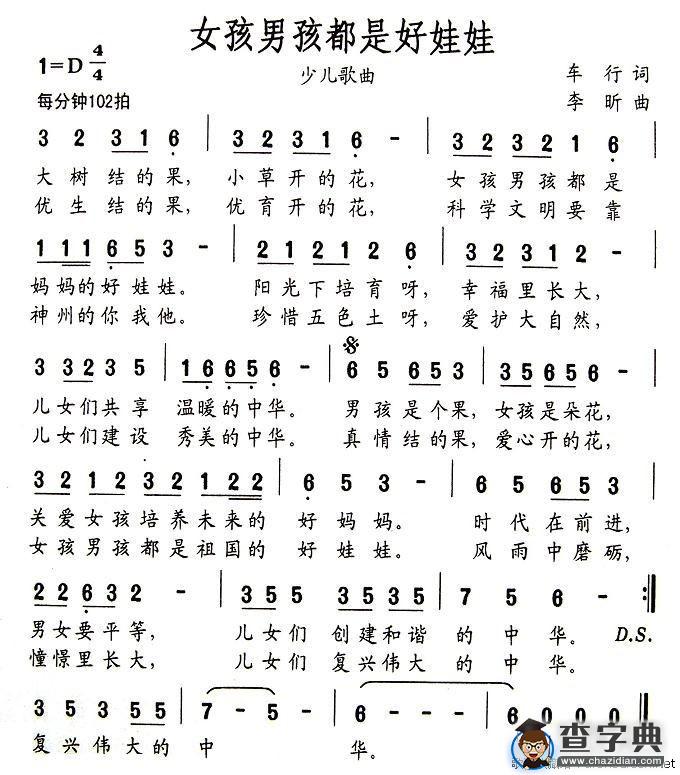 女孩男孩都是好娃娃
1=D 4/4
少儿歌曲
车 行 词
每分钟102拍
李 昕 曲
3 2 3 1 6 | 3 2 3 1 6 - | 3 2 3 2 1 6 |
大树结的果, 小草开的花, 女孩男孩都是
优生结的果, 优育开的花, 科学文明要靠
1 1 1 6 5 3 - | 2 1 2 1 2 6 | 3 2 3 1 2 - |
妈妈的好娃娃。 阳光下培育呀, 幸福里长大,
神州的你我他。 珍惜五色土呀, 爱护大自然,
3 3 2 3 5 | 1 6 6 5 6 - | 6 5 6 5 3 | 3 5 6 5 6 - |
儿女们共享 温暖的中华。 男孩是个果, 女孩是朵花,
儿女们建设 秀美的中华。 真情结的果, 爱心开的花,
3 2 1 2 3 2 1 2 2 | 6 5 3 - | 6 5 6 5 3 |
关爱女孩培养未来的 好妈妈。 时代在前进,
女孩男孩都是祖国的 好娃娃。 风雨中磨砺,
2 2 6 3 2 - | 3 5 5 3 5 3 5 5 | 7 5 6 - :||
男女要平等, 儿女们 创建和谐 的 中 华。 D.S.
憧憬里长大, 儿女们 复兴伟大 的 中 华。
3 5 3 5 5 | 7 - 5 - | 6 - - - | 6 0 0 0 ||
复兴伟大的 中 华。
查字典
www.chazidian.com